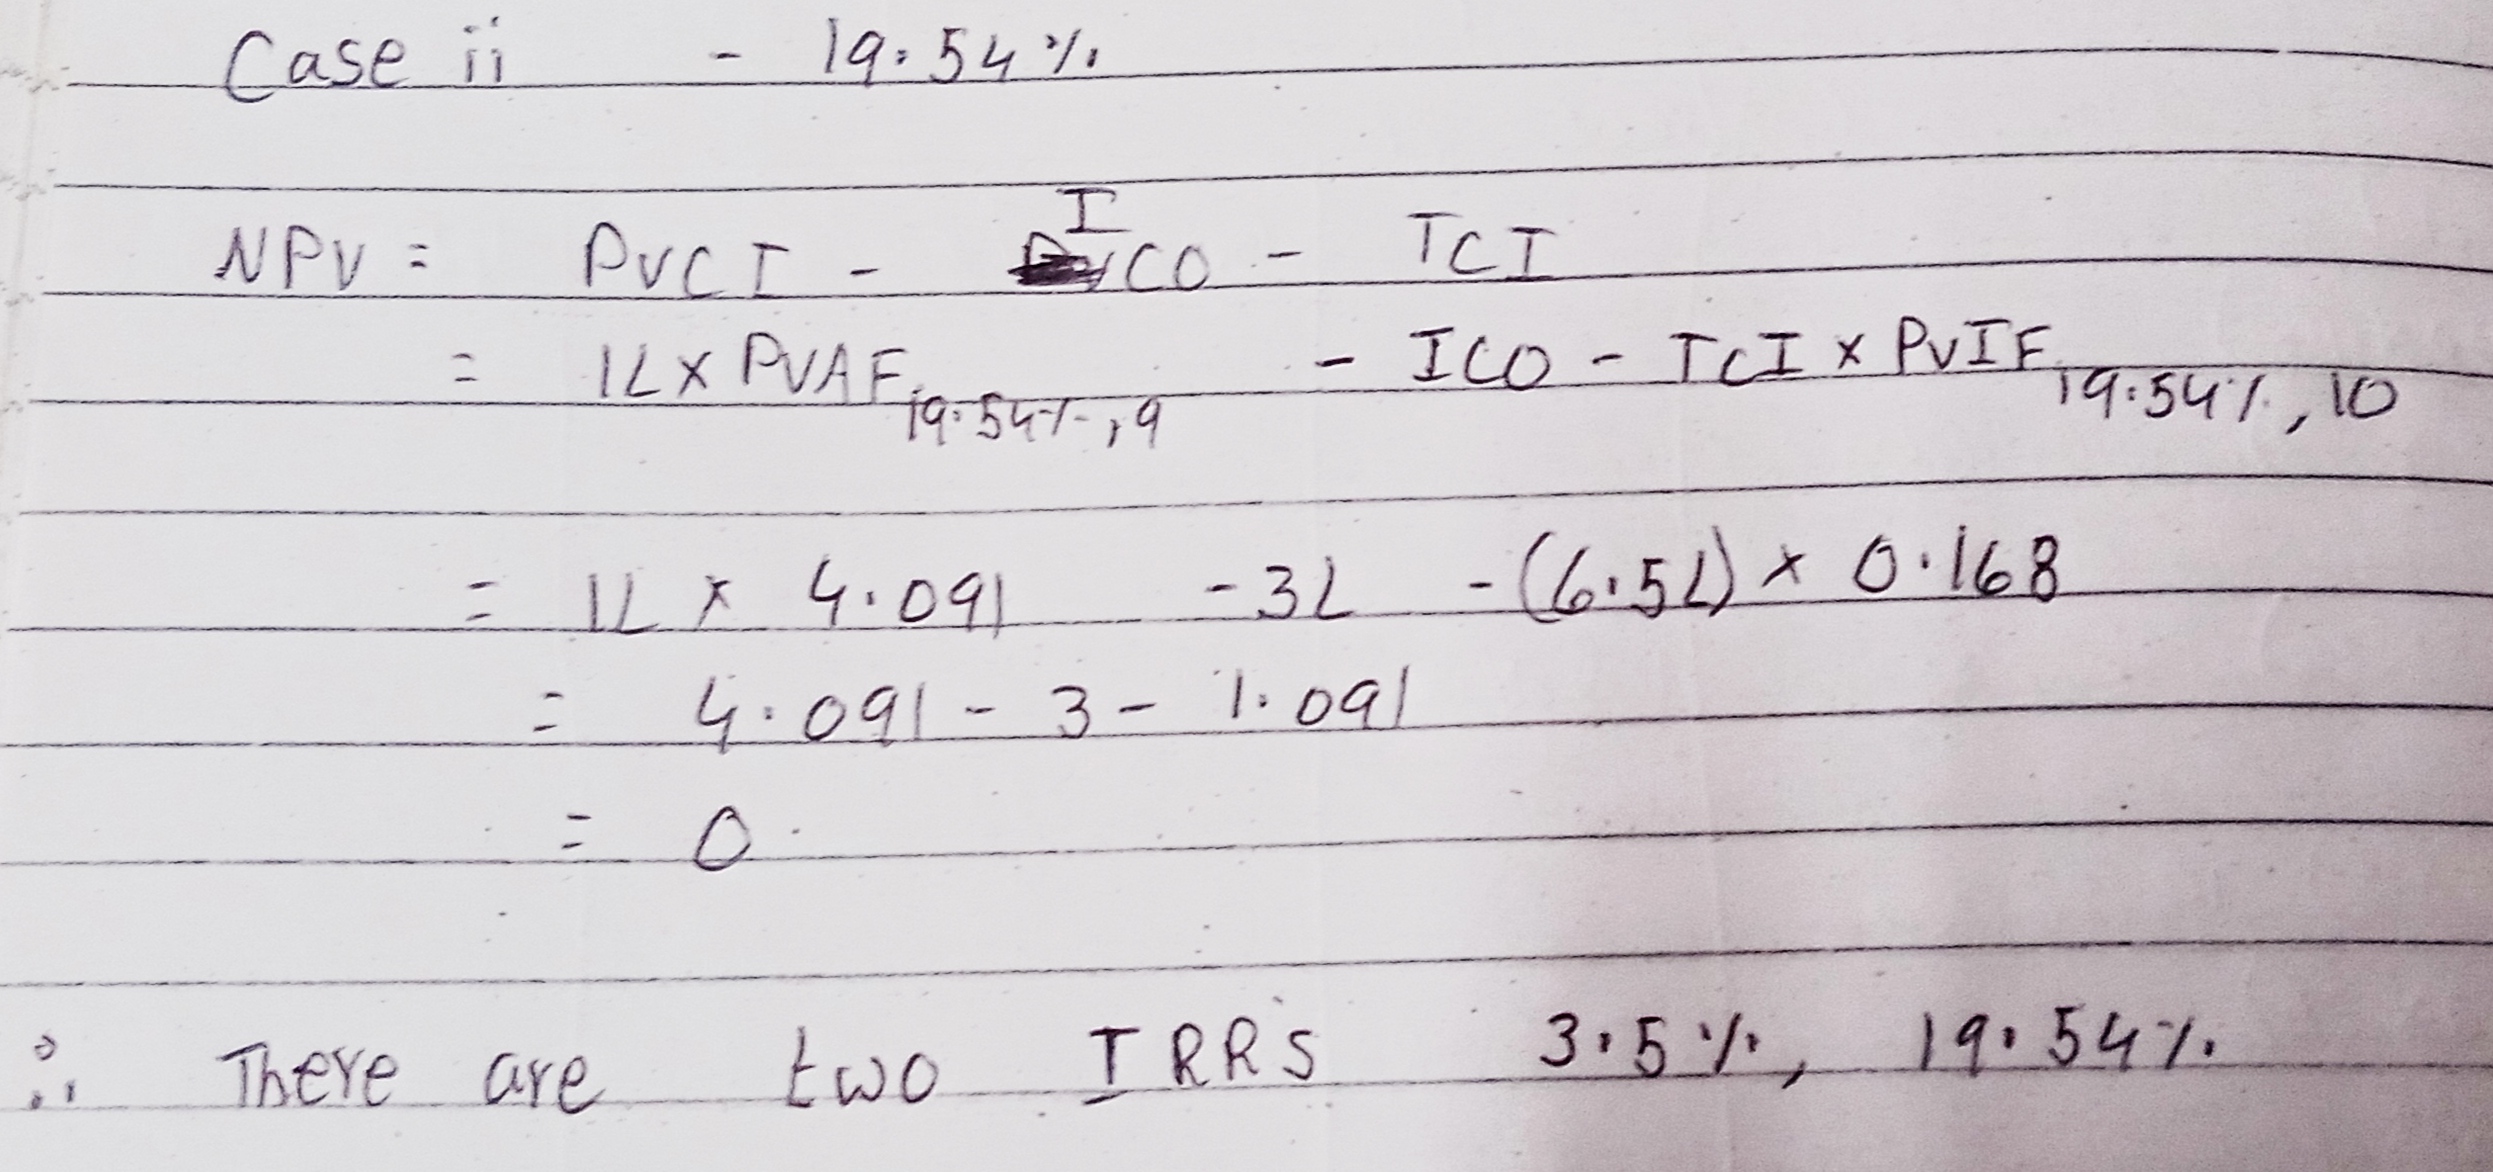 Case ii - 19.54%
NPV = PVCI - ICO - TCI
= 1L x PVAF 19.54%, 9 - ICO - TCI x PVIF 19.54%, 10
= 1L x 4.091 - 3L - (6.5L) x 0.168
= 4.091 - 3 - 1.091
= 0
∴ There are two IRR's 3.5%, 19.54%